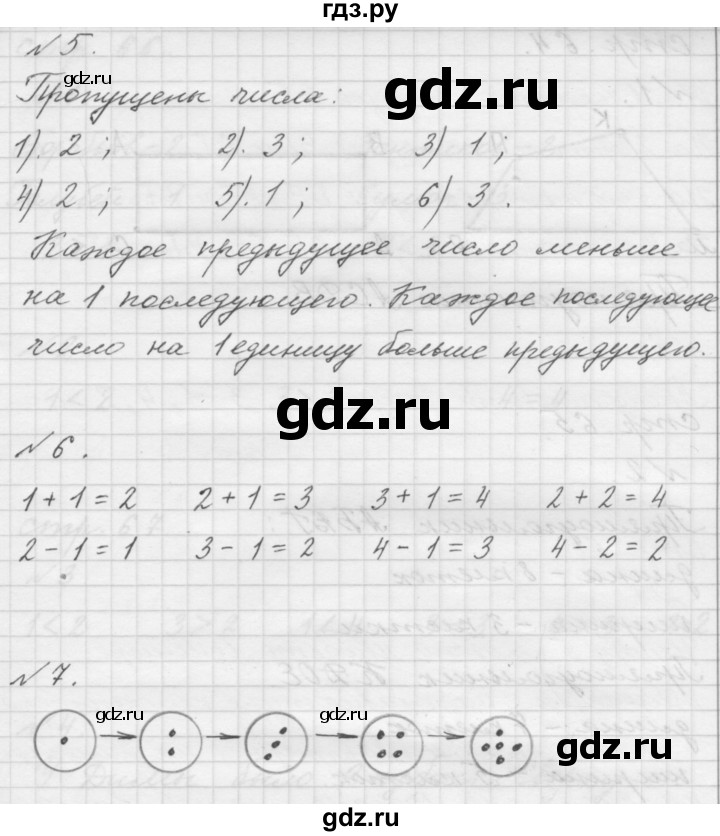 гдз.ру
№ 5.
gdz.ru
gdz.ru
Пропущены числа:
1). 2 ; 2). 3 ; 3) 1 ;
4) 2 ; 5). 1 ; 6) 3 .
Каждое предыдущее число меньше
на 1 последующего. Каждое последующее
число на 1 единицу больше предыдущего.
gdz.ru
№ 6.
1 + 1 = 2 2 + 1 = 3 3 + 1 = 4 2 + 2 = 4
2 - 1 = 1 3 - 1 = 2 4 - 1 = 3 4 - 2 = 2
№ 7.
gdz.ru gdz.ru
gdz.ru
gdz.ru